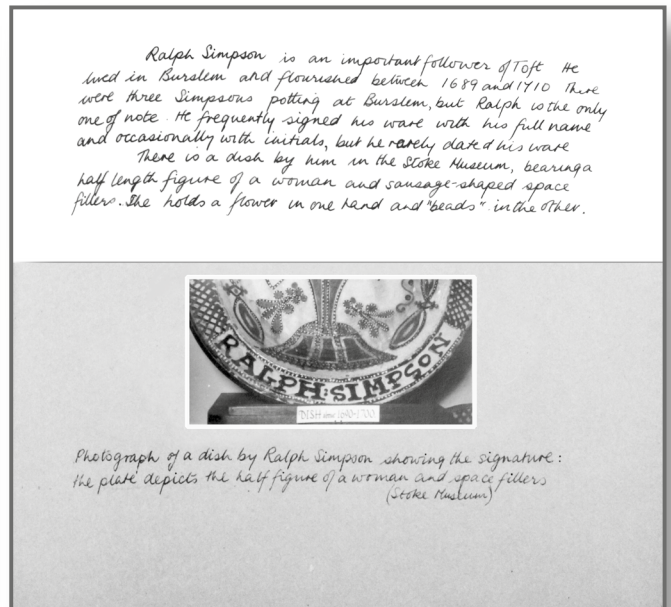 Ralph Simpson is an important follower of Toft He
lived in Burslem and flourished between 1689 and 1710 There
were three Simpsons potting at Burslem, but Ralph is the only
one of note. He frequently signed his ware with his full name
and occasionally with initials, but he rarely dated his ware
There is a dish by him in the Stoke Museum, bearing a
half length figure of a woman and sausage-shaped space
fillers. She holds a flower in one hand and "beads" in the other.
RALPH:SIMPSON
DISH 1690-1700
Photograph of a dish by Ralph Simpson showing the signature:
the plate depicts the half figure of a woman and space fillers
(Stoke Museum)